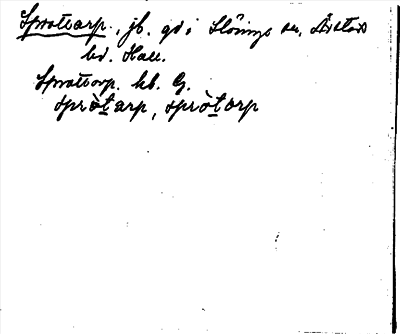 Sprottsarp, jb. gd i Slöinge sn, Årstads
hd. Hall.
Sprottsarp. kb. G.
spròtarp, spròtarp